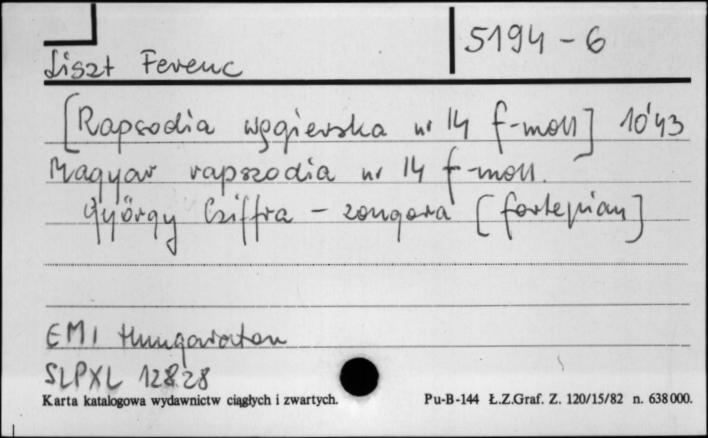 5194-6
Liszt Ferenc
[Rapsodia węgierska nr 14 f-moll] 10'43
Magyar rapszodia nr 14 f-moll.
György Cziffra - zongora [fortepian]
EMI Hungaroton
SLPXL 12828
Karta katalogowa wydawnictw ciągłych i zwartych. Pu-B-144 Ł.Z.Graf. Z. 120/15/82 n. 638 000.